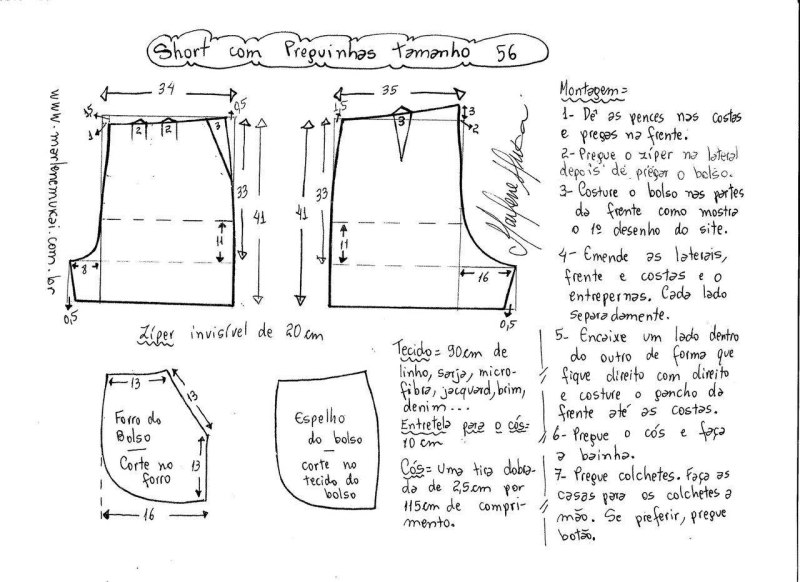 Short com Preguinhas tamanho 56
www.marlenemukai.com.br
34
1,5
0,5
1
2
2
3
33
41
11
8
0,5
35
1,5
3
3
2
41
33
11
16
0,5
Marlene Mukai
Zíper invisível de 20cm
13
13
13
16
Forro do
Bolso
Corte no
forro
Espelho
do bolso
corte no
tecido do
bolso
Tecido= 90cm de
linho, sarja, micro-
fibra, jacquard, brim,
denim...
Entretela para o cós=
10 cm
Cós= Uma tira dobra-
da de 2,5cm por
115cm de compri-
mento.
Montagem=
1- Dê as pences nas costas
e pregas na frente.
2- Pregue o zíper na lateral
depois de pregar o bolso.
3- Costure o bolso nas partes
da frente como mostra
o 1º desenho do site.
4- Emende as laterais,
frente e costas e o
entrepernas. Cada lado
separadamente.
5- Encaixe um lado dentro
do outro de forma que
fique direito com direito
e costure o gancho da
frente até as costas.
6- Pregue o cós e faça
a bainha.
7- Pregue colchetes. Faça as
casas para os colchetes a
mão. Se preferir, pregue
botão.